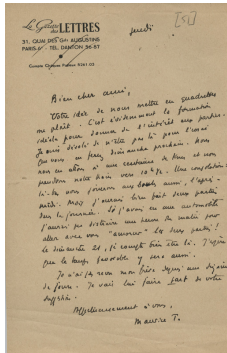 La Gazette des LETTRES
31, QUAI DES Gds AUGUSTINS
PARIS-6e - TEL. DANTON 36-87
Compte Chèques Postaux 5261-03
jeudi
[51]
Bien cher ami,
Votre idée de nous mettre en quadrettes
me plaît. C'est évidemment la formation
idéale pour donner de l'intérêt aux parties.
Je suis désolé de n'être pas là pour l'essai
que vous en ferez dimanche prochain. Nous
nous en allons à une centaine de Kms et nous
rentrons
là-bas nous jouerons aussi d'après-
midi. Mais j'aurais bien fait deux parties
dans la journée. Si j'avais eu une automobile
j'aurais pu distraire une heure du matin pour
aller avec vous "amorcer" les deux parties !
Le dimanche 21, je compte bien être là. J'espère
que le temps favorable y sera aussi.
Je n'ai pas revu mon frère depuis une dizaine
de jours. Je vais lui faire part de votre
suggestion.
Affectueusement à vous,
Maurice T.